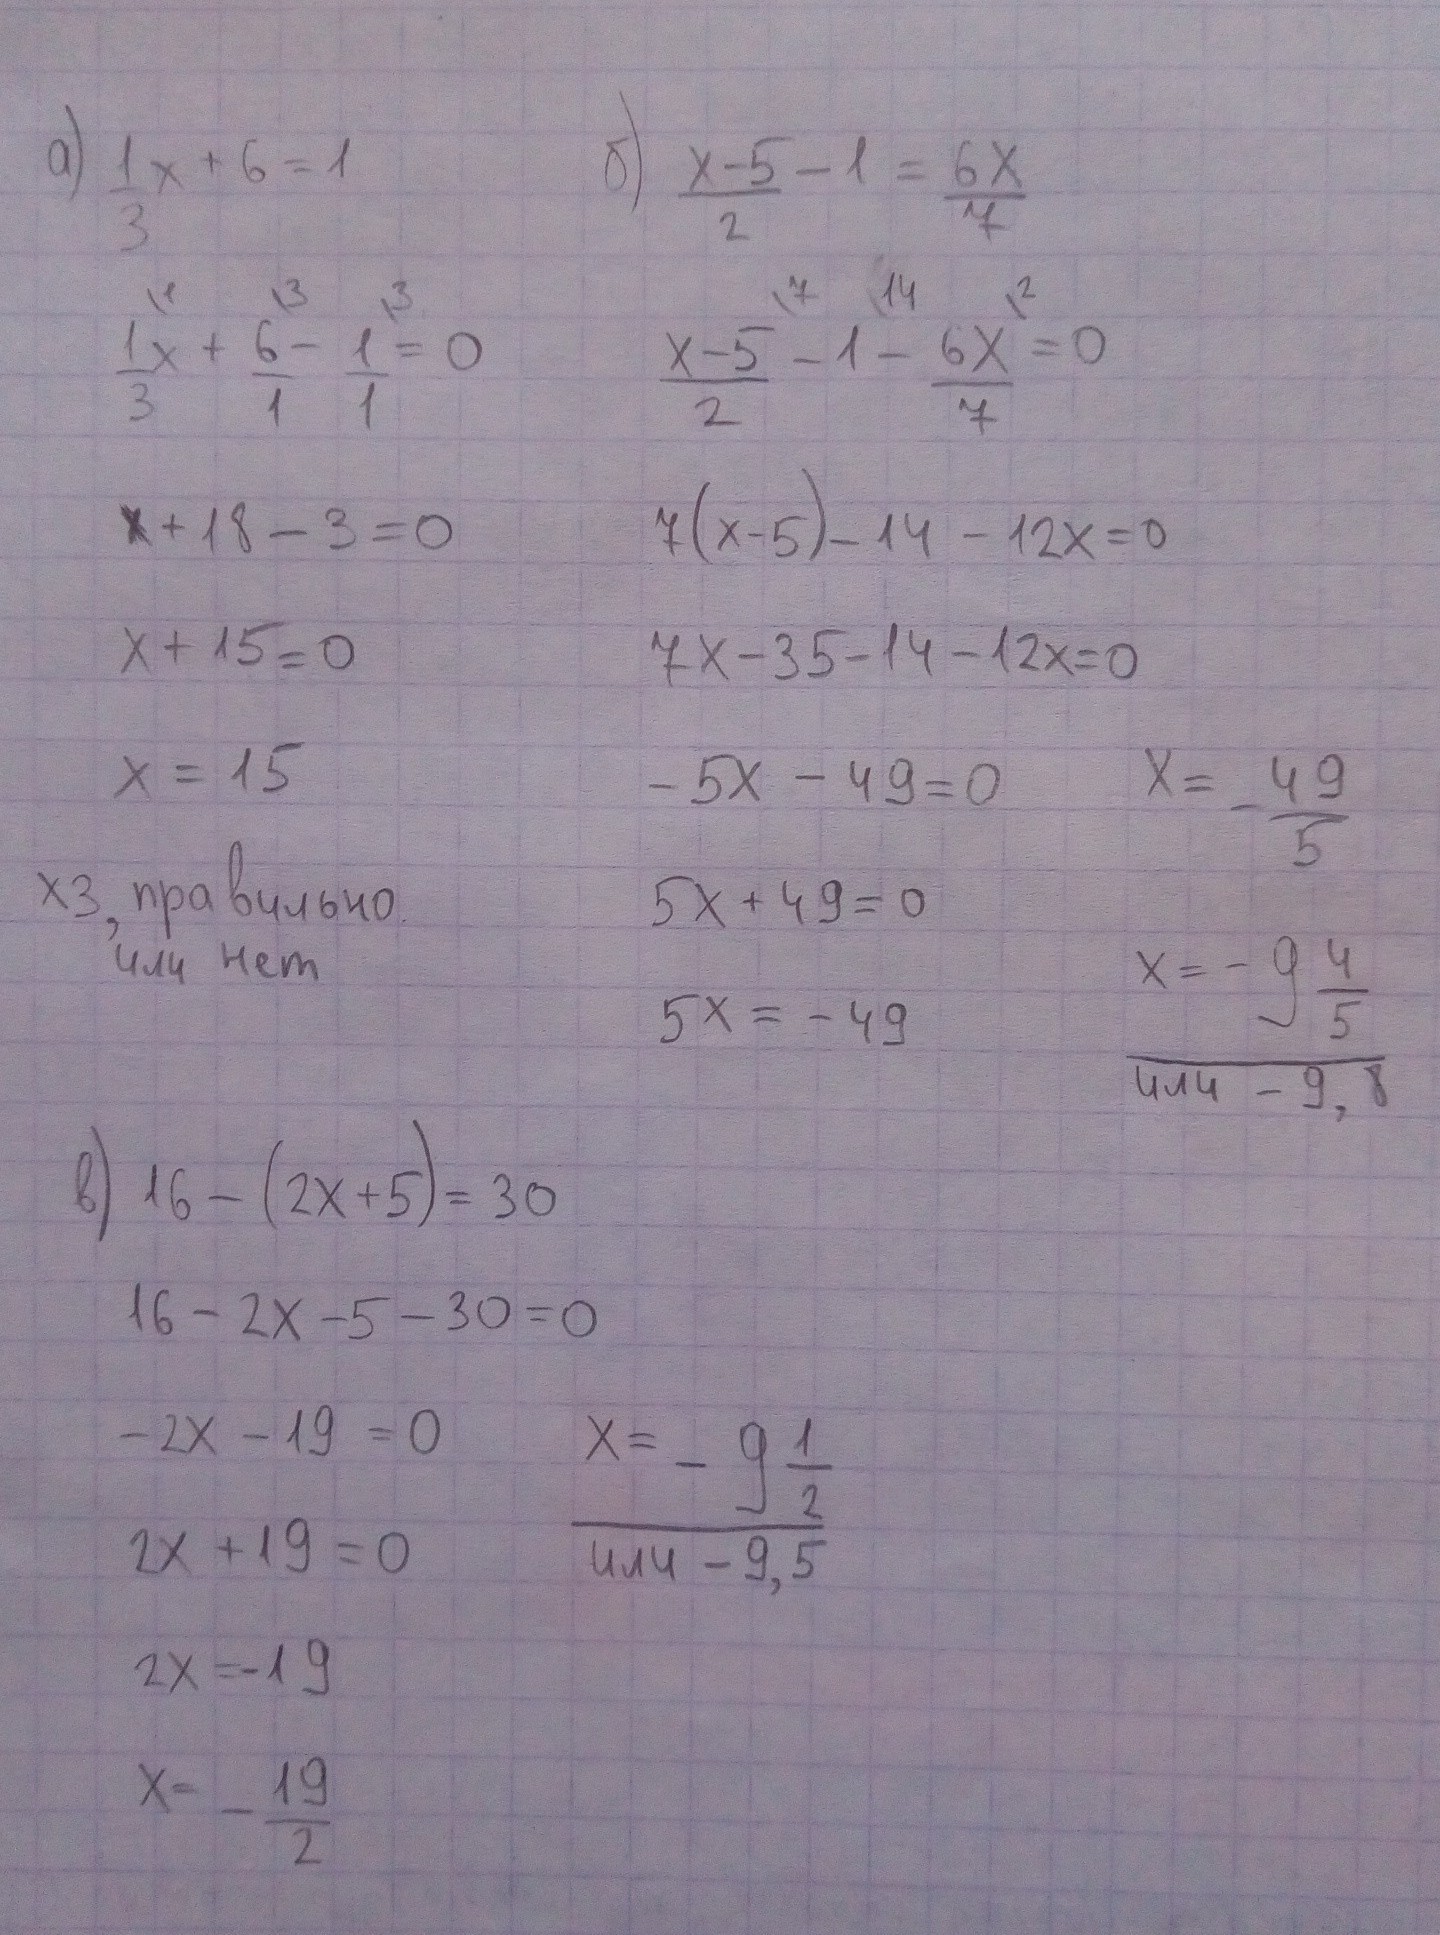 а) 1/3 x + 6 = 1
1/3 x \1 + 6/1 \3 - 1/1 \3 = 0
x + 18 - 3 = 0
x + 15 = 0
x = 15
хз, правильно
или нет
б) (x-5)/2 - 1 = 6x/7
(x-5)/2 \7 - 1 \14 - 6x/7 \2 = 0
7(x-5) - 14 - 12x = 0
7x - 35 - 14 - 12x = 0
-5x - 49 = 0
5x + 49 = 0
5x = -49
x = - 49/5
x = - 9 4/5
или - 9,8
в) 16 - (2x+5) = 30
16 - 2x - 5 - 30 = 0
-2x - 19 = 0
2x + 19 = 0
2x = -19
x = - 19/2
x = - 9 1/2
или - 9,5